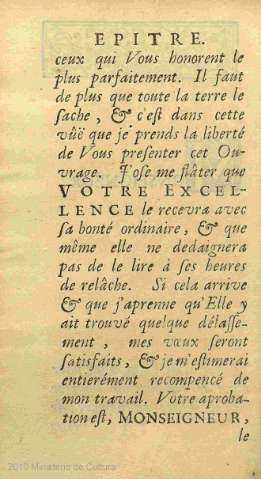 EPITRE.
ceux qui Vous honorent le
plus parfaitement. Il faut
de plus que toute la terre le
sache, & c'est dans cette
vûë que je prends la liberté
de Vous presenter cet Ou-
vrage. J'ose me flâter que
VOTRE EXCEL-
LENCE le recevra avec
sa bonté ordinaire, & que
même elle ne dedaignera
pas de le lire à ses heures
de relâche. Si cela arrive
& que j'aprenne qu'Elle y
ait trouvé quelque délasse-
ment, mes vœux seront
satisfaits, & je m'estimerai
entierément recompencé de
mon travail. Votre aproba-
tion est, MONSEIGNEUR,
le
2010 Ministerio de Cultura